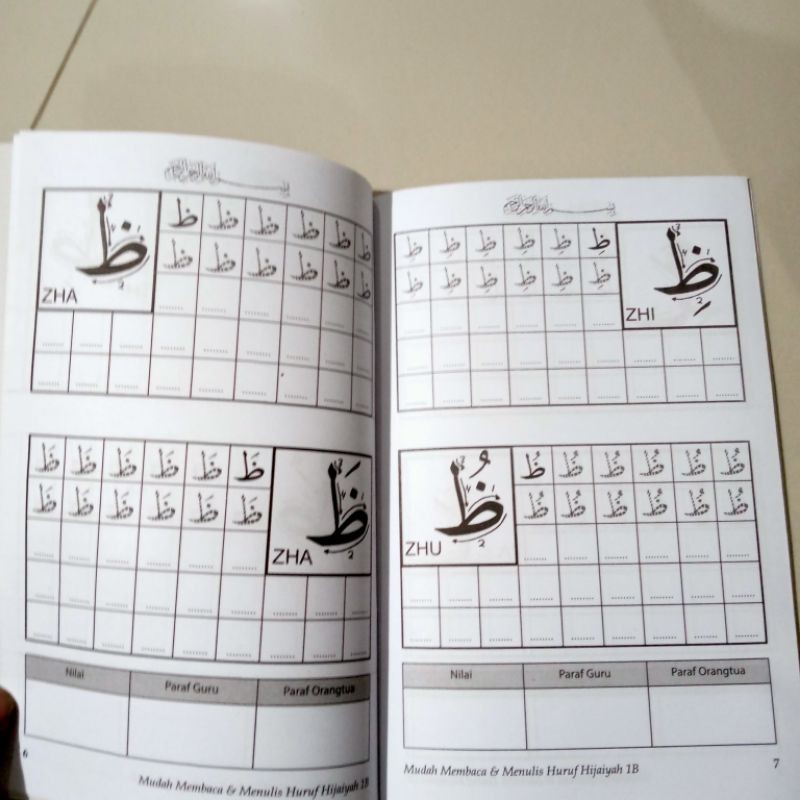 بسم الله الرحمن الرحيم
ظ
ZHA
ظ ظ ظ ظ ظ ظ
ظ ظ ظ ظ ظ ظ
ظَ ظَ ظَ ظَ ظَ ظَ
ظَ ظَ ظَ ظَ ظَ ظَ
ظَ
ZHA
Nilai Paraf Guru Paraf Orangtua
6
Mudah Membaca & Menulis Huruf Hijaiyah 1B
بسم الله الرحمن الرحيم
ظِ ظِ ظِ ظِ ظِ ظِ
ظِ ظِ ظِ ظِ ظِ ظِ
ظِ
ZHI
ظُ
ZHU
ظُ ظُ ظُ ظُ ظُ ظُ
ظُ ظُ ظُ ظُ ظُ ظُ
Nilai Paraf Guru Paraf Orangtua
Mudah Membaca & Menulis Huruf Hijaiyah 1B
7